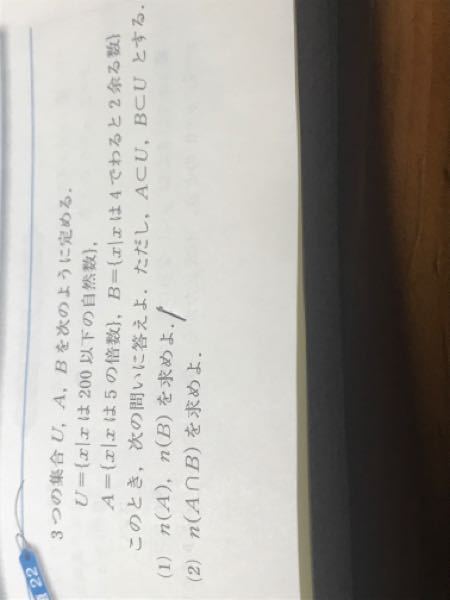 22
3つの集合 U, A, B を次のように定める.
U={x|xは200以下の自然数},
A={x|xは5の倍数}, B={x|xは4でわると2余る数}
このとき, 次の問いに答えよ. ただし, A⊂U, B⊂U とする.
(1) n(A), n(B) を求めよ.
(2) n(A∩B) を求めよ.